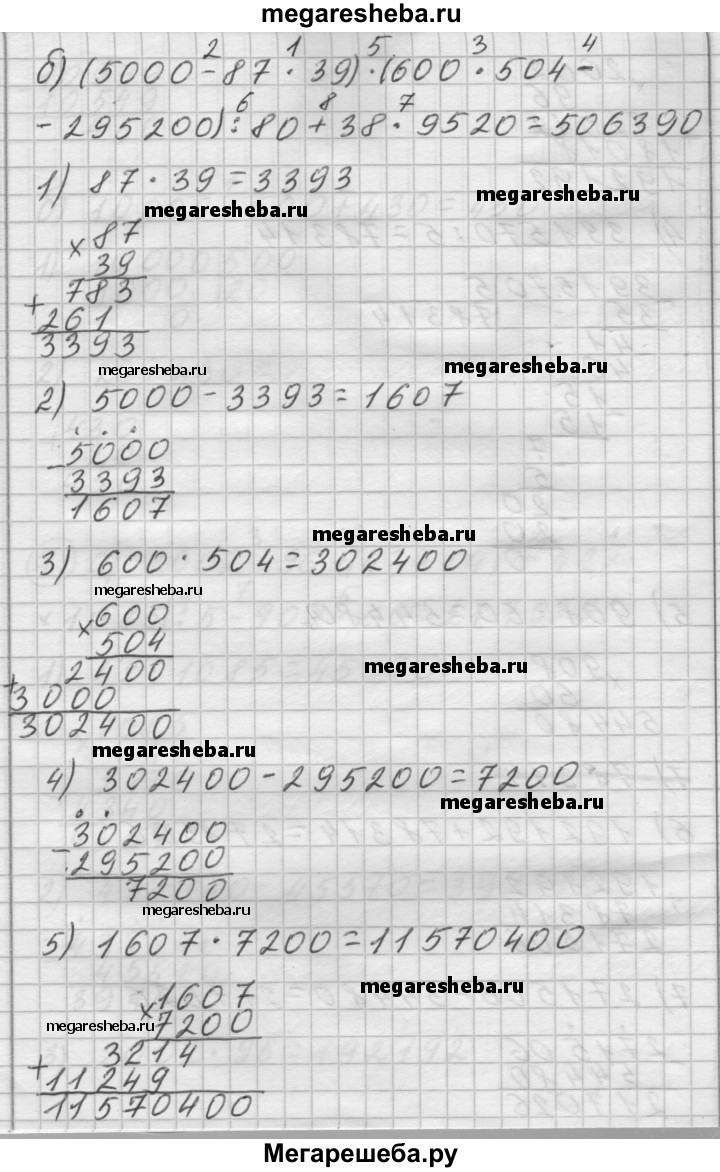 megaresheba.ru
2 1 5 3 4
б) (5000-87·39)·(600·504-
6 8 7
-295200):80+38·9520=506390
1) 87·39=3393
megaresheba.ru
megaresheba.ru
× 87
39
783
+ 261
3393
megaresheba.ru
megaresheba.ru
2) 5000-3393=1607
- 5000
3393
1607
megaresheba.ru
3) 600·504=302400
megaresheba.ru
× 600
504
2400
megaresheba.ru
+ 3000
302400
megaresheba.ru
4) 302400-295200=7200
megaresheba.ru
- 302400
295200
7200
megaresheba.ru
5) 1607·7200=11570400
megaresheba.ru
× 1607
7200
megaresheba.ru
3214
+ 11249
11570400
Мегарешеба.ру